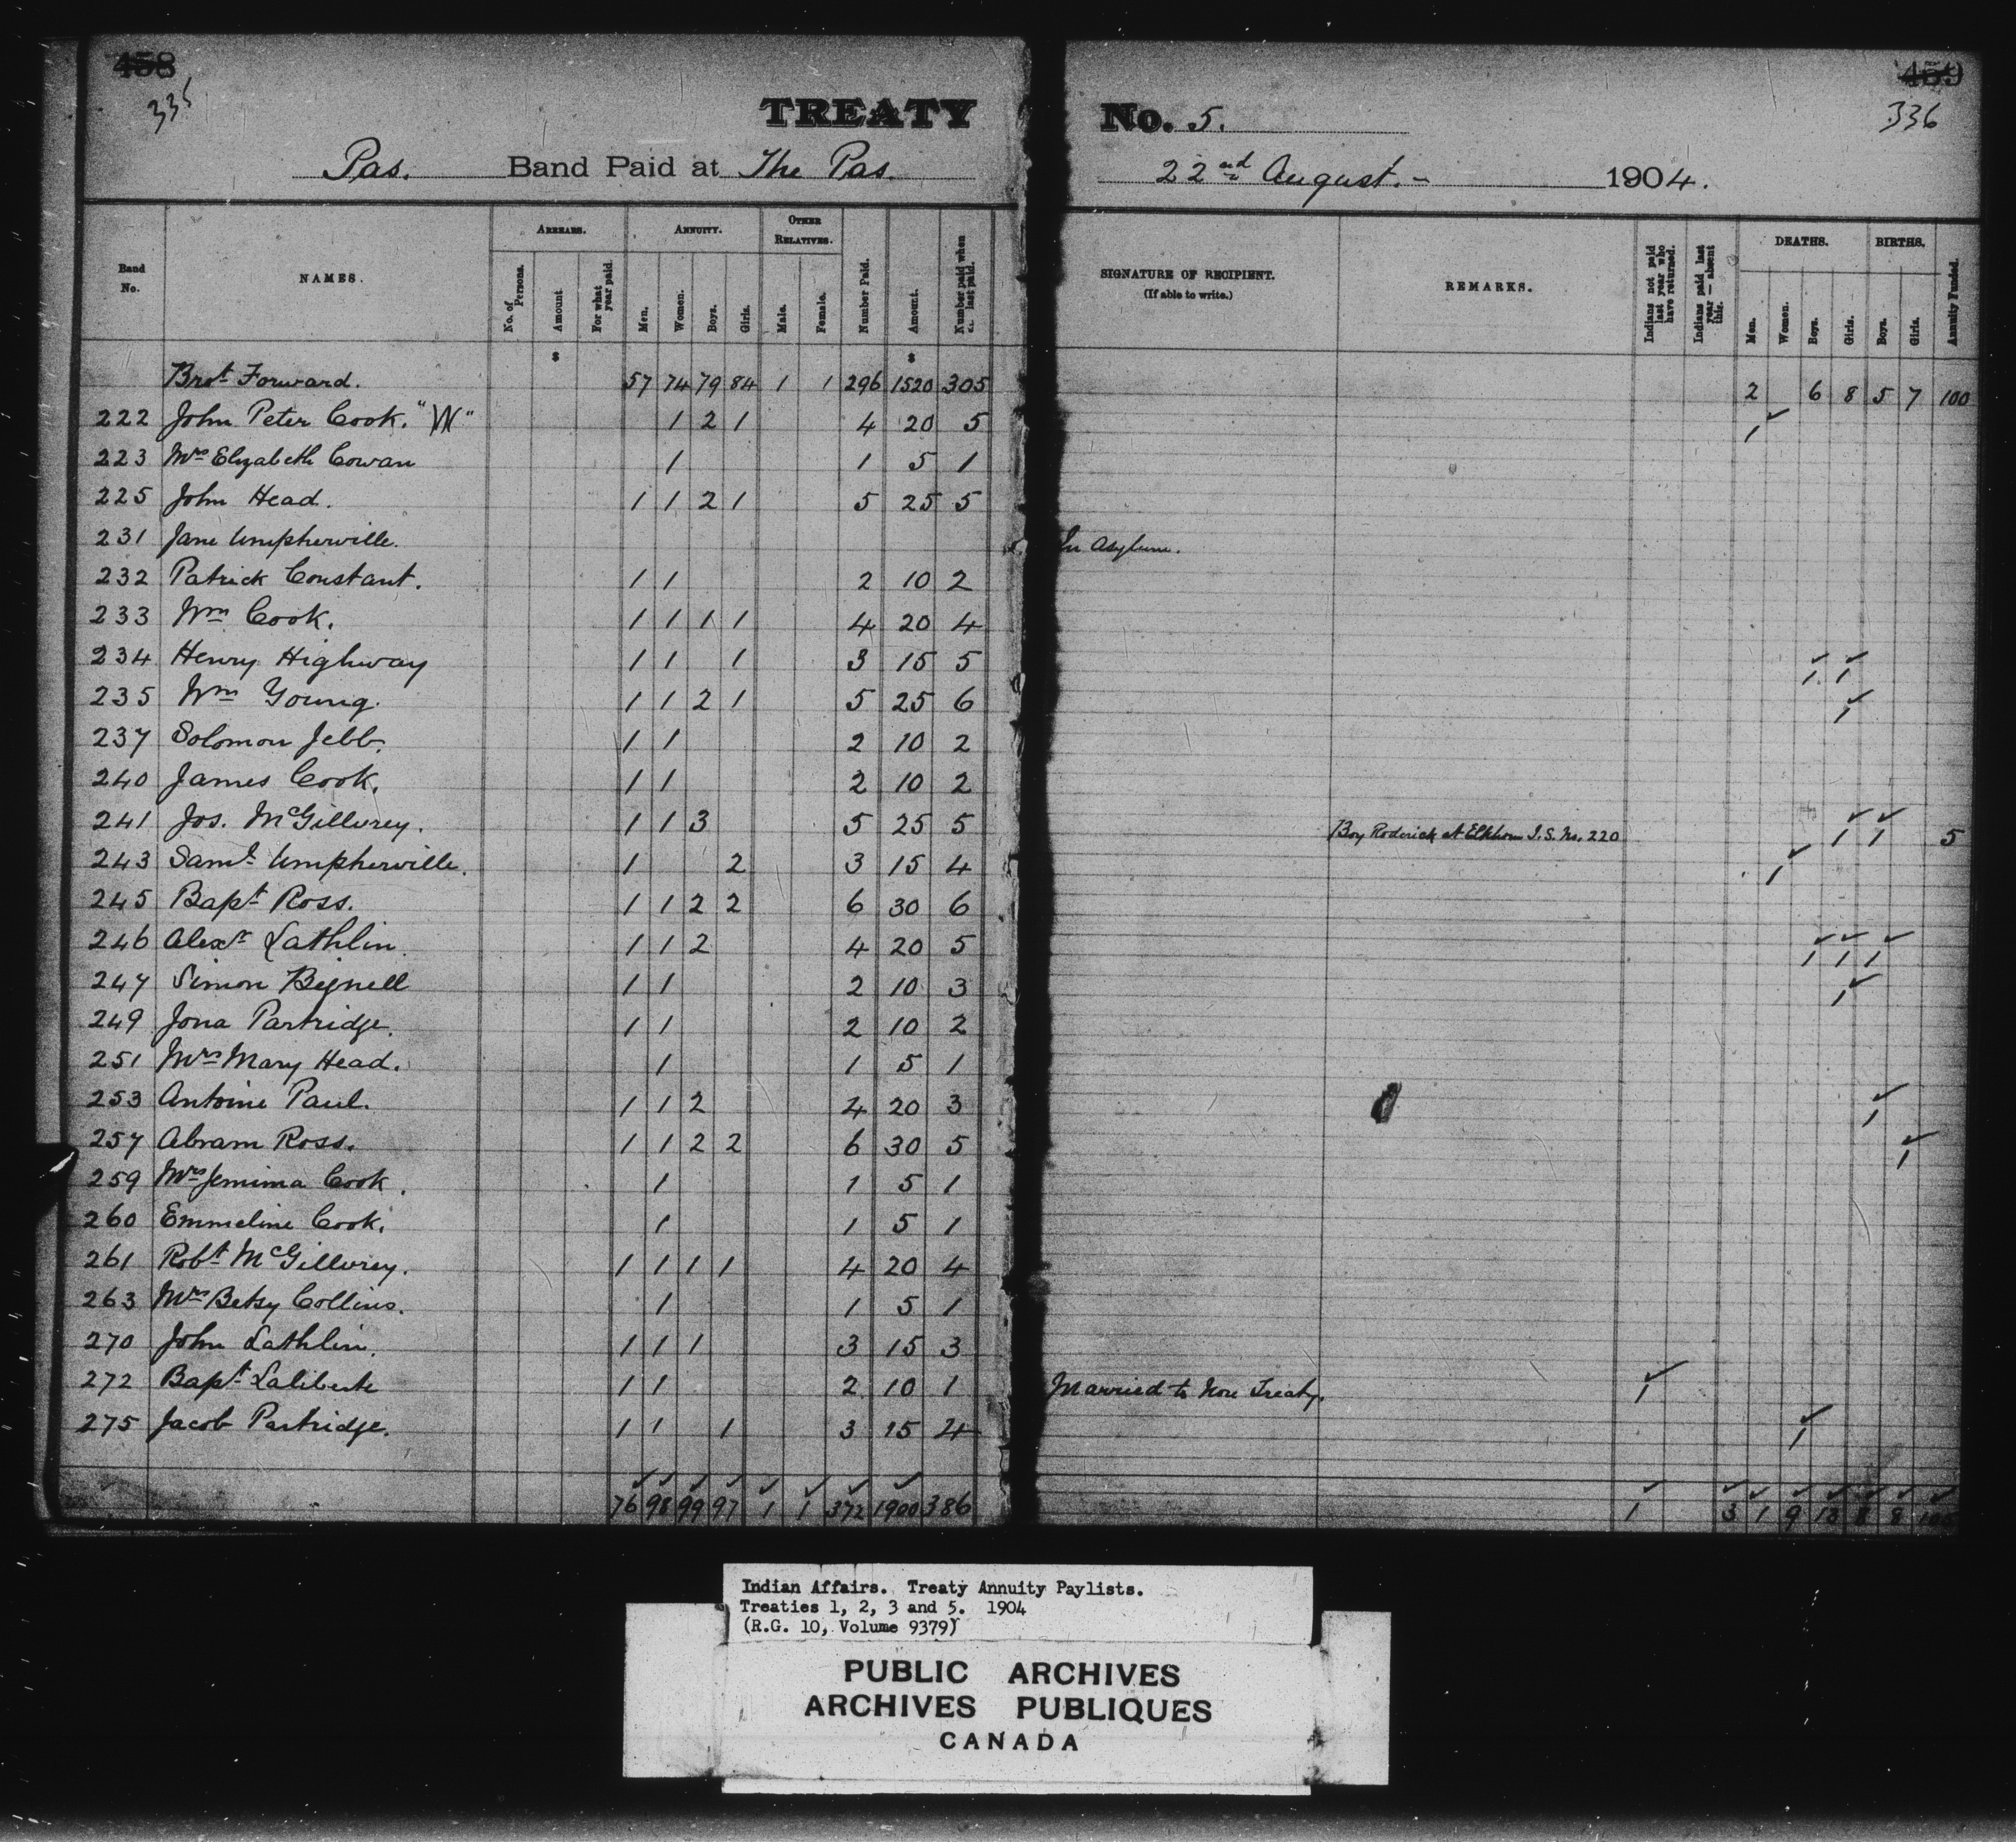 458
335
TREATY
Pas. Band Paid at The Pas.
No. 5.
459
336
22nd August. - 1904.
Band No.
NAMES.
ARREARS.
No. of Persons.
Amount
For what year paid.
ANNUITY.
Men.
Women.
Boys.
Girls.
OTHER RELATIVES.
Male.
Female.
Number Paid.
Amount.
Number paid when last paid.
SIGNATURE OF RECIPIENT.
(If able to write.)
REMARKS.
Indians not paid last year who have returned.
Indians paid last year — absent this.
DEATHS.
Men.
Women.
Boys.
Girls.
BIRTHS.
Boys.
Girls.
Annuity Funded.
$ $
Brot Forward. 57 74 79 84 1 1 296 1520 305 2 6 8 5 7 100
222 John Peter Cook. "W" 1 2 1 4 20 5 1
223 Mrs Elizabeth Cowan 1 1 5 1
225 John Head. 1 1 2 1 5 25 5
231 Jane Umpherville. In Asylum.
232 Patrick Constant. 1 1 2 10 2
233 Wm Cook. 1 1 1 1 4 20 4
234 Henry Highway 1 1 1 3 15 5 1 1
235 Wm Young. 1 1 2 1 5 25 6 1
237 Solomon Jebb. 1 1 2 10 2
240 James Cook. 1 1 2 10 2
241 Jos. McGillvrey. 1 1 3 5 25 5 Boy Roderick at Elkhorn I.S. No. 220 1 1 5
243 Saml Umpherville. 1 2 3 15 4 1
245 Bapt Ross. 1 1 2 2 6 30 6
246 Alexr Lathlin. 1 1 2 4 20 5 1 1 1
247 Simon Bignell 1 1 2 10 3 1
249 Jona Partridge. 1 1 2 10 2
251 Mrs Mary Head. 1 1 5 1
253 Antoine Paul. 1 1 2 4 20 3 1
257 Abram Ross. 1 1 2 2 6 30 5 1
259 Mrs Jemima Cook. 1 1 5 1
260 Emmeline Cook. 1 1 5 1
261 Robt McGillvrey. 1 1 1 1 4 20 4
263 Mrs Betsy Collins. 1 1 5 1
270 John Lathlin. 1 1 1 3 15 3
272 Bapt Laliberte 1 1 2 10 1 Married to Non Treaty. 1
275 Jacob Partridge. 1 1 1 3 15 4 1
76 98 99 97 1 1 372 1900 386 1 3 1 9 13 8 8 105
Indian Affairs. Treaty Annuity Paylists.
Treaties 1, 2, 3 and 5. 1904
(R.G. 10, Volume 9379)
PUBLIC ARCHIVES
ARCHIVES PUBLIQUES
CANADA